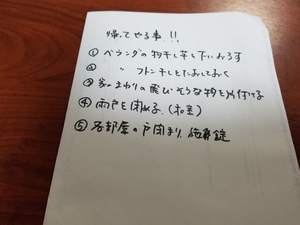 帰ってやる事!!
① ベランダの物干し竿を下におろす
② 〃 フトン干しをたおしておく
③ 家のまわりの飛びそうな物を片付ける
④ 雨戸を閉める(和室)
⑤ 各部屋の戸閉まり、施錠